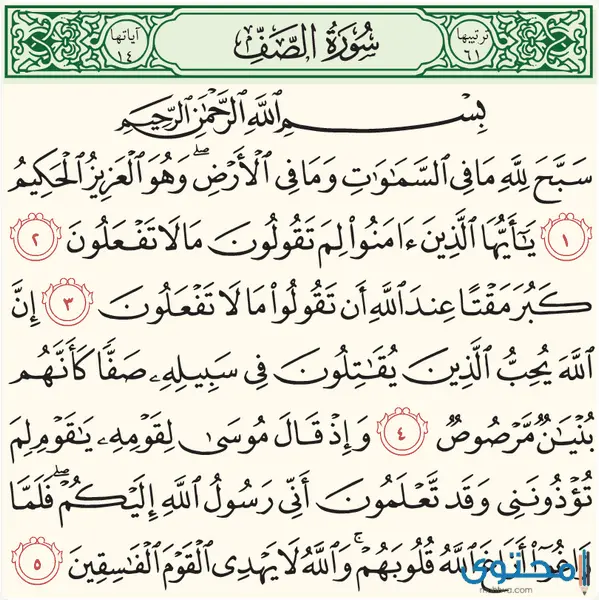 ترتيبها ٦١
سُورَةُ الصَّفِّ
آياتها ١٤
بِسْمِ ٱللَّهِ ٱلرَّحْمَٰنِ ٱلرَّحِيمِ
سَبَّحَ لِلَّهِ مَا فِى ٱلسَّمَٰوَٰتِ وَمَا فِى ٱلْأَرْضِ ۖ وَهُوَ ٱلْعَزِيزُ ٱلْحَكِيمُ
١ يَٰٓأَيُّهَا ٱلَّذِينَ ءَامَنُوا۟ لِمَ تَقُولُونَ مَا لَا تَفْعَلُونَ ٢
كَبُرَ مَقْتًا عِندَ ٱللَّهِ أَن تَقُولُوا۟ مَا لَا تَفْعَلُونَ ٣ إِنَّ
ٱللَّهَ يُحِبُّ ٱلَّذِينَ يُقَٰتِلُونَ فِى سَبِيلِهِۦ صَفًّا كَأَنَّهُم
بُنْيَٰنٌ مَّرْصُوصٌ ٤ وَإِذْ قَالَ مُوسَىٰ لِقَوْمِهِۦ يَٰقَوْمِ لِمَ
تُؤْذُونَنِى وَقَد تَّعْلَمُونَ أَنِّى رَسُولُ ٱللَّهِ إِلَيْكُمْ ۖ فَلَمَّا
زَاغُوٓا۟ أَزَاغَ ٱللَّهُ قُلُوبَهُمْ ۚ وَٱللَّهُ لَا يَهْدِى ٱلْقَوْمَ ٱلْفَٰسِقِينَ ٥
محتوى
mhtwa.com